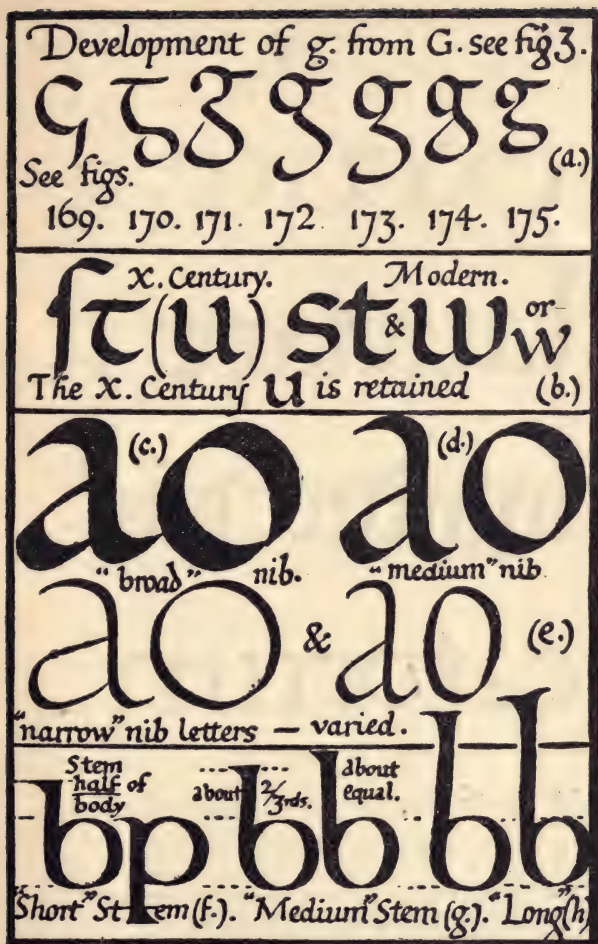 Development of g. from G. see fig 3.
ς ꞇ Ʒ g g g g (a.)
See figs.
169. 170. 171. 172. 173. 174. 175.
X. Century. Modern.
ſꞇ (u) st & w or w
The X. Century u is retained (b.)
ao (c.) ao (d.)
"broad" nib. "medium" nib
ao & ao (e.)
"narrow" nib letters — varied.
Stem half of body about 2/3rds. about equal.
bp bb bb
"Short" Stem (f.). "Medium" Stem (g.). "Long" (h